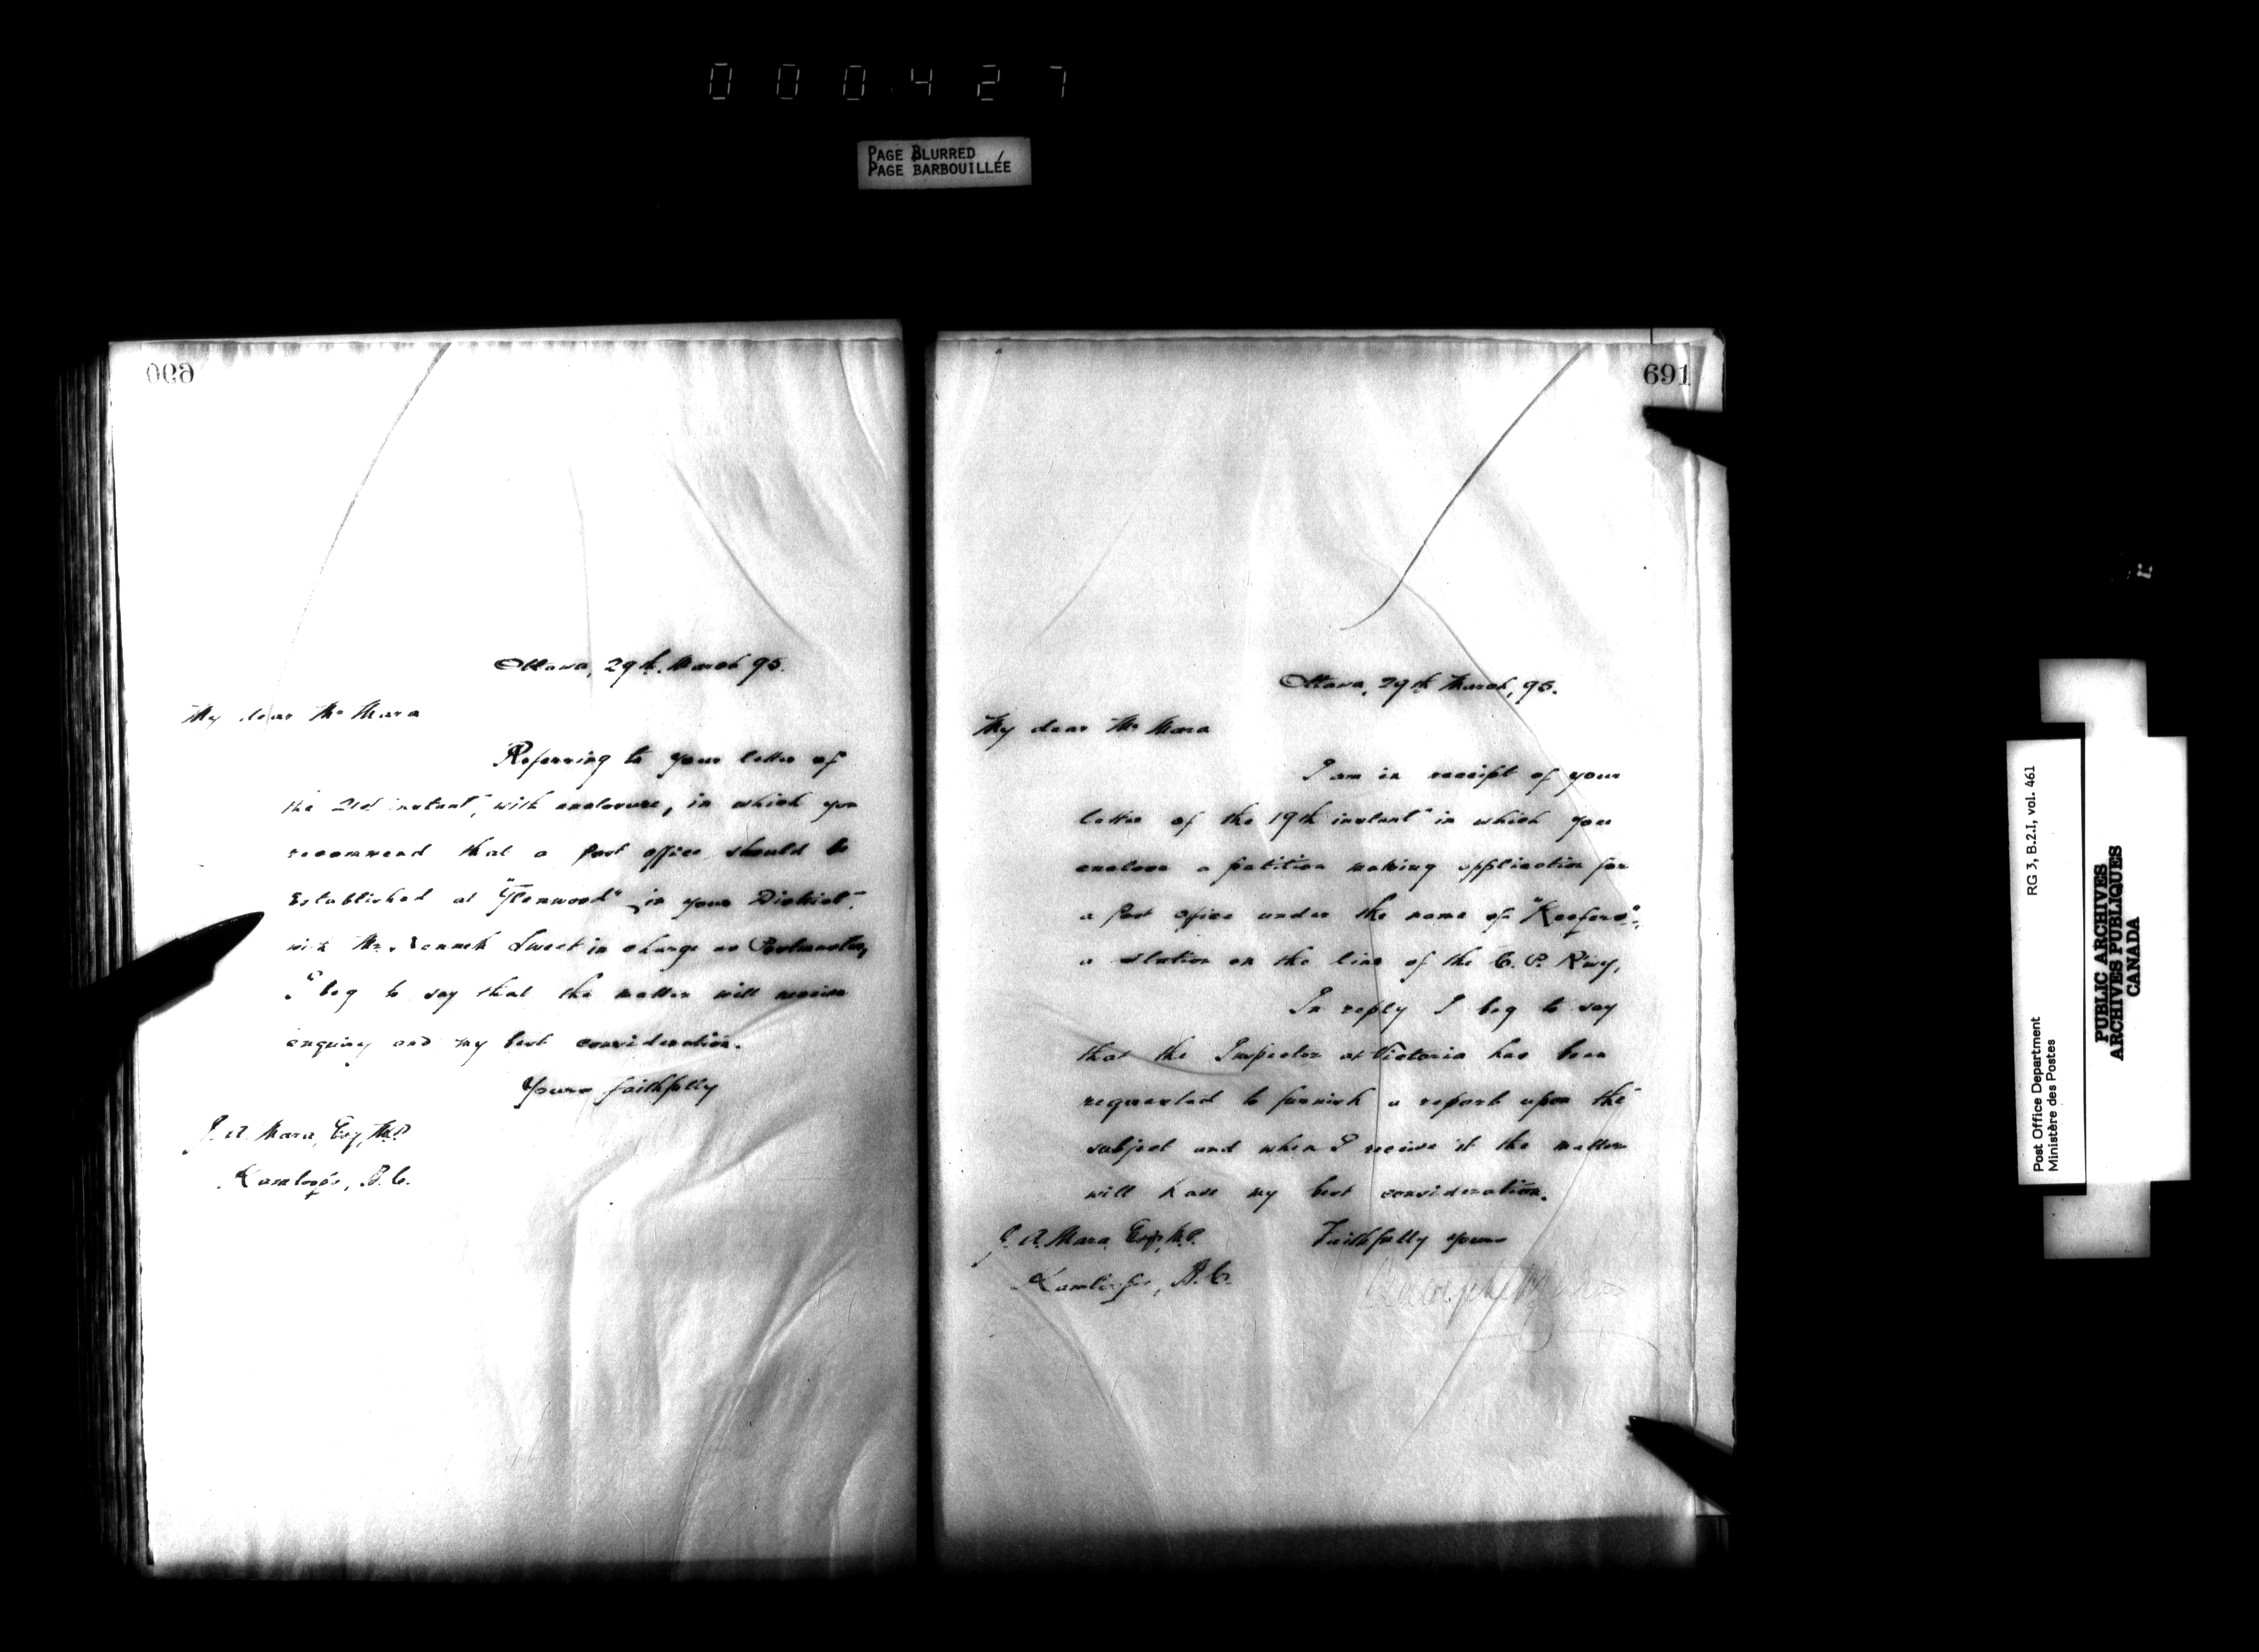 000427
PAGE BLURRED
PAGE BARBOUILLÉE
690
Ottawa, 29th. March 95.
My dear Mr Mara
Referring to your letter of
the 21st instant, with enclosure, in which you
recommend that a Post office should be
established at "Glenwood" in your District,
with Mr. Kenneth Sweet in charge as Postmaster,
I beg to say that the matter will receive
enquiry and my best consideration.
Yours faithfully
J. A. Mara, Esq, M.P.
Kamloops, B.C.
691
Ottawa, 29th March, 95.
My dear Mr Mara
I am in receipt of your
letter of the 19th instant in which you
enclose a petition making application for
a Post office under the name of "Keefers",
a station on the line of the C. P. Rwy,
In reply I beg to say
that the Inspector at Victoria has been
requested to furnish a report upon the
subject and when I receive it the matter
will have my best consideration.
Faithfully yours
J. A. Mara Esq, M.P.
Kamloops, B.C.
RG 3, B.2.I, vol. 461
Post Office Department
Ministère des Postes
PUBLIC ARCHIVES
ARCHIVES PUBLIQUES
CANADA